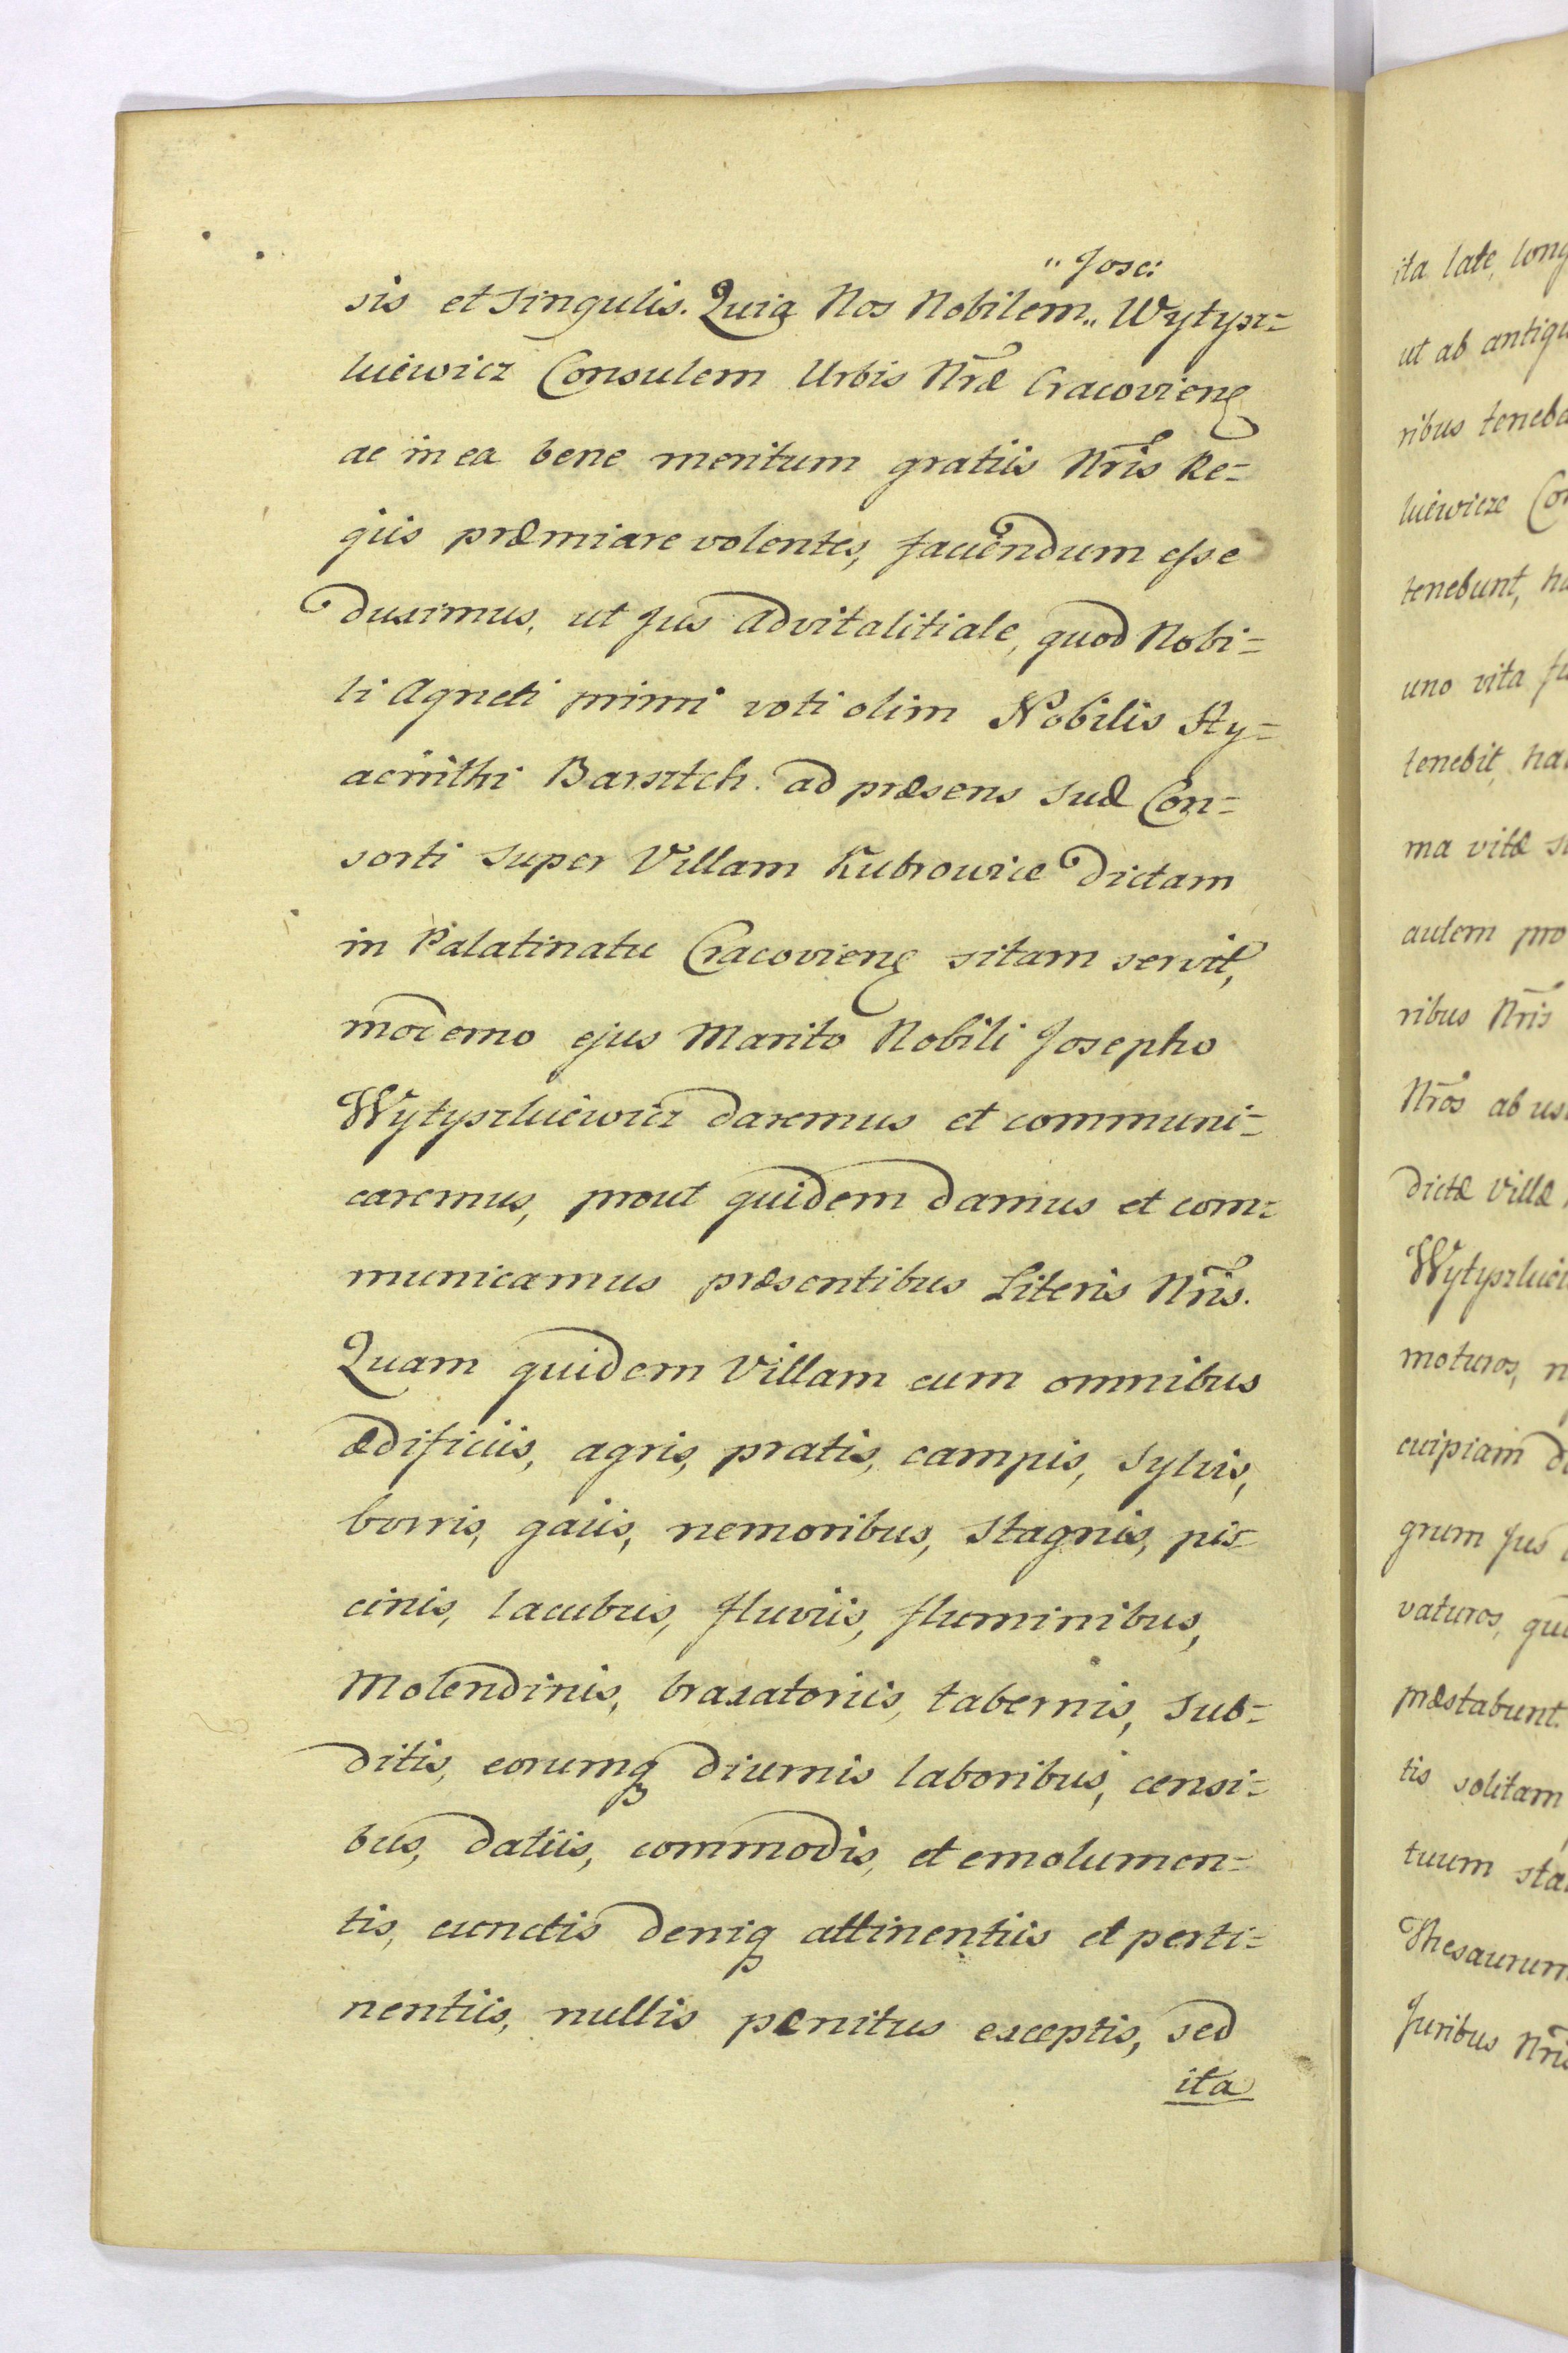 " Jose:
sis et singulis. Quia Nos Nobilem „ Wytysz=
kiewicz Consulem Urbis Nr̃æ Cracovieng
ac in ea bene meritum gratiis Nr̃is Re=
giis præmiare volentes, faciendum esse
duximus, ut Jus advitalitiale, quod Nobi=
li Agneti primi voti olim Nobilis Hy=
acinthi Barsztch. ad præsens suæ Con=
sorti super Villam Kubrowice dictam
in Palatinatu Cracovieng sitam servit,
moderno ejus Marito Nobili Josepho
Wytyszkiewicz daremus et communi=
caremus, prout quidem damus et com=
municamus præsentibus Literis Nr̃is.
Quam quidem Villam cum omnibus
ædificiis, agris, pratis, campis, sylvis,
borris, gaiis, nemoribus, stagnis, pis=
cinis, lacubus, fluviis, fluminibus,
Molendinis, braxatoriis, tabernis, sub=
ditis, eorumq diurnis laboribus, censi=
bus, datiis, commodis, et emolumen=
tis, cunctis deniq attinentiis et perti=
nentiis, nullis penitus exceptis, sed
ita
ita late, long
ut ab antiqu
ribus teneba
kiewicze Con
tenebunt, ha
uno vita fu
tenebit, ha
ma vitæ su
autem pro
ribus Nr̃is
Nr̃os ab us
dictæ Villæ,
Wytyszkie
moturos, n
cuipiam d
grum Jus
vaturos, qu
præstabunt.
tis solitam
tuum sta
Thesaurum
Juribus Nr̃is